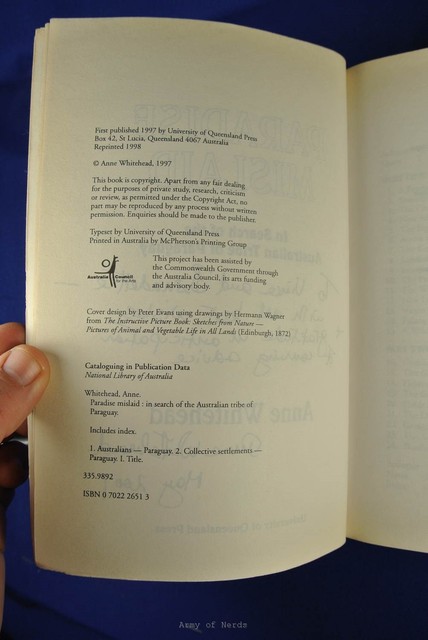 First published 1997 by University of Queensland Press
Box 42, St Lucia, Queensland 4067 Australia
Reprinted 1998
© Anne Whitehead, 1997
This book is copyright. Apart from any fair dealing
for the purposes of private study, research, criticism
or review, as permitted under the Copyright Act, no
part may be reproduced by any process without written
permission. Enquiries should be made to the publisher.
Typeset by University of Queensland Press
Printed in Australia by McPherson's Printing Group
Australia Council
for the Arts
This project has been assisted by
the Commonwealth Government through
the Australia Council, its arts funding
and advisory body
Cover design by Peter Evans using drawings by Hermann Wagner
from The Instructive Picture Book: Sketches from Nature —
Pictures of Animal and Vegetable Life in All Lands (Edinburgh, 1872)
Cataloguing in Publication Data
National Library of Australia
Whitehead, Anne.
Paradise mislaid : in search of the Australian tribe of
Paraguay.
Includes index.
1. Australians — Paraguay. 2. Collective settlements —
Paraguay. I. Title.
335.9892
ISBN 0 7022 2651 3
Anne Whitehead
University of Queensland Press
Army of Nerds